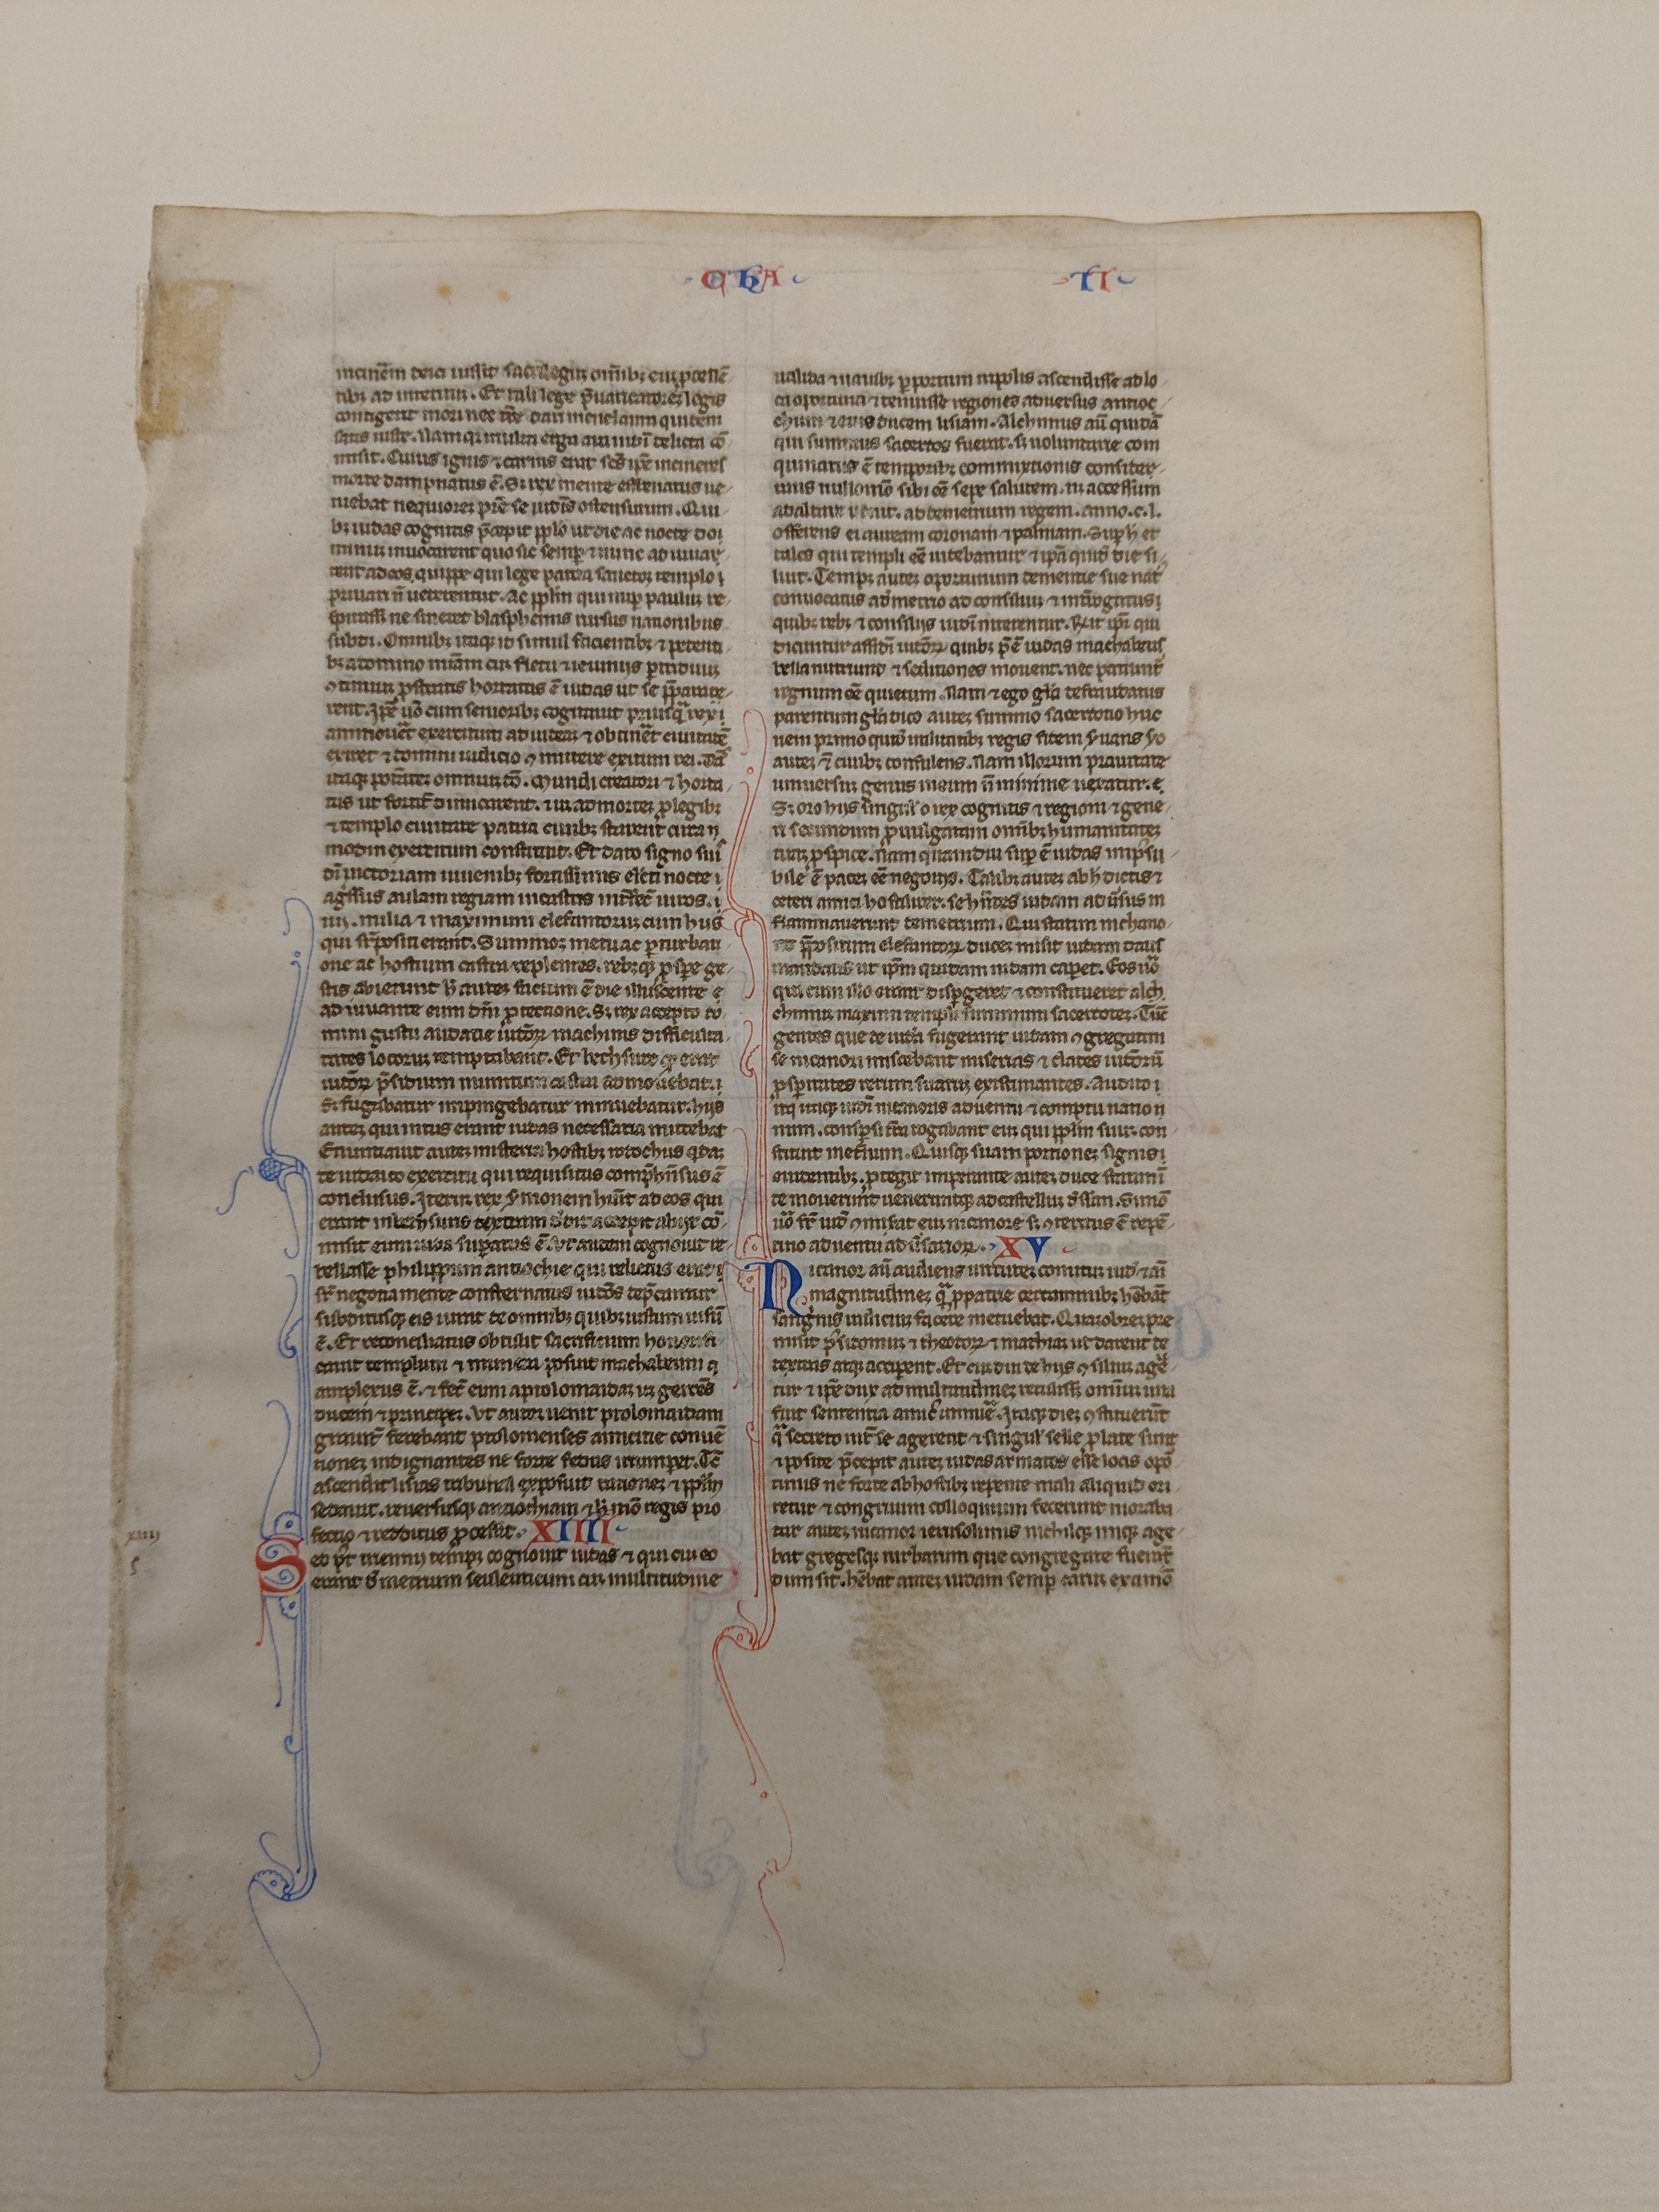 CHA II
incinerem deici iussit sacrilegium omnibus eius p̄cellē
tibȝ ad interitum. Et tali lege p̄uaricatorē legis
contigerit mori nec tr̄e dari menelaum quidem
satis iuste. Nam qr̄ multa erga aram dei delicta cō
misit. Cuius ignis ⁊ cinis erat scs̄ ip̄e in cineris
morte dampnatus ē. Sȝ rex mente effrenatus ue
niebat nequiorē pr̄e se iudeīs ostensurum. Qui
bȝ iudas cognitis p̄cepit pplo ut die ac nocte do
minum inuocarent quo sic semp̄ ⁊ nunc adiuuar
ent ad eos quippe qui lege patria sanctoqȝ templo
priuari n̄ uererentur. Ac pplm qui nup̄ paulum re
spirasset ne sineret blasphemis rursus nationibus
subdi. Omnibȝ itaqȝ id simul facientibȝ ⁊ petenti
bȝ a domino miām cum fletu ⁊ ieiuniis p̄ triduum
ꝯtinuum p̄stratis hortatus ē iudas ut se p̄pararē
rent. Ip̄e uō cum senioribȝ cogitauit priusqȝ rex
ammoueret exercitum ad iudeam ⁊ obtineret ciuitatē
exiret ⁊ domini iudicio ꝯmittere exitum rei. Dās
itaqȝ potestatē omnium dō. mundi creatori ⁊ horta
tus ut fortit̄ dimicarent. ⁊ usqȝ ad mortem p̄ legibȝ
⁊ templo ciuitate patria ciuibȝ starent circa
modin exercitum constituit. Et dato signo suis
dī uictoriam iuuenibȝ fortissimis electis nocte
agressus aulam regiam in castris interfec̄ uiros.
iiii. milia ⁊ maximum elefantorum cum hys
qui supr̄positi erant. Summoqȝ metu ac p̄turbati
one ac hostium castra replentes. rebȝqȝ p̄spe ge
stis abierunt h̄ autem factum ē die illuscente
adiuuante eum dn̄i p̄tectione. Sȝ rex accepto
mini gustu audatie iudeorꝝ machinis difficulta
tates locorum temptabant. Et bethsure qȝ erat
iudeorꝝ p̄sidium munitum castra admouebat.
Sȝ fugabatur inpingebatur minuebatur. hys
autem qui intus erant iudas necessaria mittebat
Enuntiauit autem misteria hostibȝ rodochus qdam
de iudaico exercitu qui requisitus comp̄hensus ē
conclusus. Iterum rex sermonem habuit ad eos qui
erant in bethsuris dextram dedit accepit abiit cō
misit cum iudas sup̄atus ē. Ut autem cognouit re
bellasse philippum antiochie qui relictus erat
sr̄ negotia mente consternatus iudeos dep̄cantur
subditusqȝ eis iurat de omnibȝ quibȝ iustum uisū
ē. Et reconciliatus obtulit sacrificium honorifi
cauit templum ⁊ munera posuit machabeum
amplexus ē. ⁊ fec̄ eum a ptolomaidam usqȝ gerrēos
ducem ⁊ principem. Ut autem uenit ptolomaidam
grauit̄ ferebant ptolomenses amicitie conue
tionem indignantes ne forte fedus irrumperet. Tūc
ascendit lisias tribunal exposuit rationem ⁊ pplm
sedauit. reuersusqȝ antiochiam ⁊ h̄ mō regis pro
fectio ⁊ redditus p̄cessit. XIIII
xiiii
Sed p̄t trienni tempȝ cognouit iudas ⁊ qui cum eo
erant demetrium seuleuticum cum multitudine
ualida ⁊ nauibȝ p̄ portum tripolis ascendisse ad lo
ca oportuna ⁊ tenuisse regiones aduersus antioc
chum ⁊ eius ducem lisiam. Alchimus aū quidā
qui summus sacerdos fuerat. sȝ uoluntarie com
quinatus ē temporibȝ commixtionis consider
ans nullo modo sibi eē sepe salutem. neqȝ accessum
ad altare uenit. ad demetrium regem. anno. c. l.
offerens ei auream coronam ⁊ palmam. Sup̄ h̄ et
tales qui templi eē uidebantur ⁊ ip̄a quidē die si
luit. Tempȝ autem oportunum dementie sue nact
conuocatus a demetrio ad consilium ⁊ int̄rogatus
quibȝ rebȝ ⁊ consilijs iudei niterentur. Rn̄dit ip̄i qui
dicuntur assidei iudeorꝝ quibȝ p̄ē iudas machabeus
bella nutriunt ⁊ seditiones mouent. nec patiunt̄
regnum eē quietum. Nam ⁊ ego gl̄a defraudatus
parentum gl̄a dico autem summo sacerdotio huc
ueni primo quidē utilitatibȝ regis fidem seruans sō
autem ⁊ ciuibȝ consulens. Nam illorum prauitate
uniuersum genus meum n̄ minime uexatur.
Sȝ oro hys singul̄ o rex cognitis ⁊ regioni ⁊ gene
ri secundum p̄uulgatam omībȝ humanitatem
tuam p̄spice. Nam quamdiu sup̄ ē iudas inp̄ssi
bile ē pacem eē negotijs. Talibȝ autem ab h̄ dictis
ceteri amici hostiliter se habentes iudam aduersus in
flammauerunt demetrium. Qui statim nichano
rē p̄positum elefantorꝝ ducem misit iudam datis
mandatis ut ip̄m quidam iudam caperet. Eos uō
qui cum illo erant disp̄geret ⁊ constitueret alch
chimum maximi templi summum sacerdotem. Tūc
gentes que de iudea fugerant iudam ꝯgregatim
se nicanori miscebant miserias ⁊ clades iudeorū
p̄speritates rerum suarum existimantes. Audito
itqȝ itaqȝ iudei nicanoris aduentu ⁊ comptu natio
num. conspersi tr̄a rogabant eum qui pplm suum con
stituit in eternum. Quisqȝ suam portionem signis
euidentibȝ. p̄tegit imperante autem duce statim
de mouerunt ueneruntqȝ ad castellum dessau. Simō
uō fr̄ iude ꝯmiserat cum nicanore sȝ ꝯterritus ē repen
tino aduentu aduersariorꝝ. XV
Nicanor aū audiens uirtutem comitum iude ⁊ ai
magnitudinem qȝ p̄ patrie certaminibȝ hēbāt
sangnis iudicium facere metuebat. Quaobrem pre
misit possidonium ⁊ theodorꝝ ⁊ mathiam ut darent de
dextras atqȝ acciperent. Et cum diu de hys ꝯsilium age
tur ⁊ ip̄e dux ad multitudinem retulisset omnium una
fuit sententia amicitiis annuē. Itaqȝ diem ꝯstituerūt
qȝ secreto int̄ se agerent ⁊ singul̄ selle p̄late sunt
⁊ posite p̄cepit autem iudas armatos esse locis opo
tunis ne forte ab hostibȝ repente mali aliquid ori
retur ⁊ congruum colloquium fecerunt moraba
tur autem nicanor ierusolimis nichilqȝ inique age
bat gregesqȝ turbarum que congregate fuerāt
dimisit. hēbat autem iudam semp̄ carum ex animo